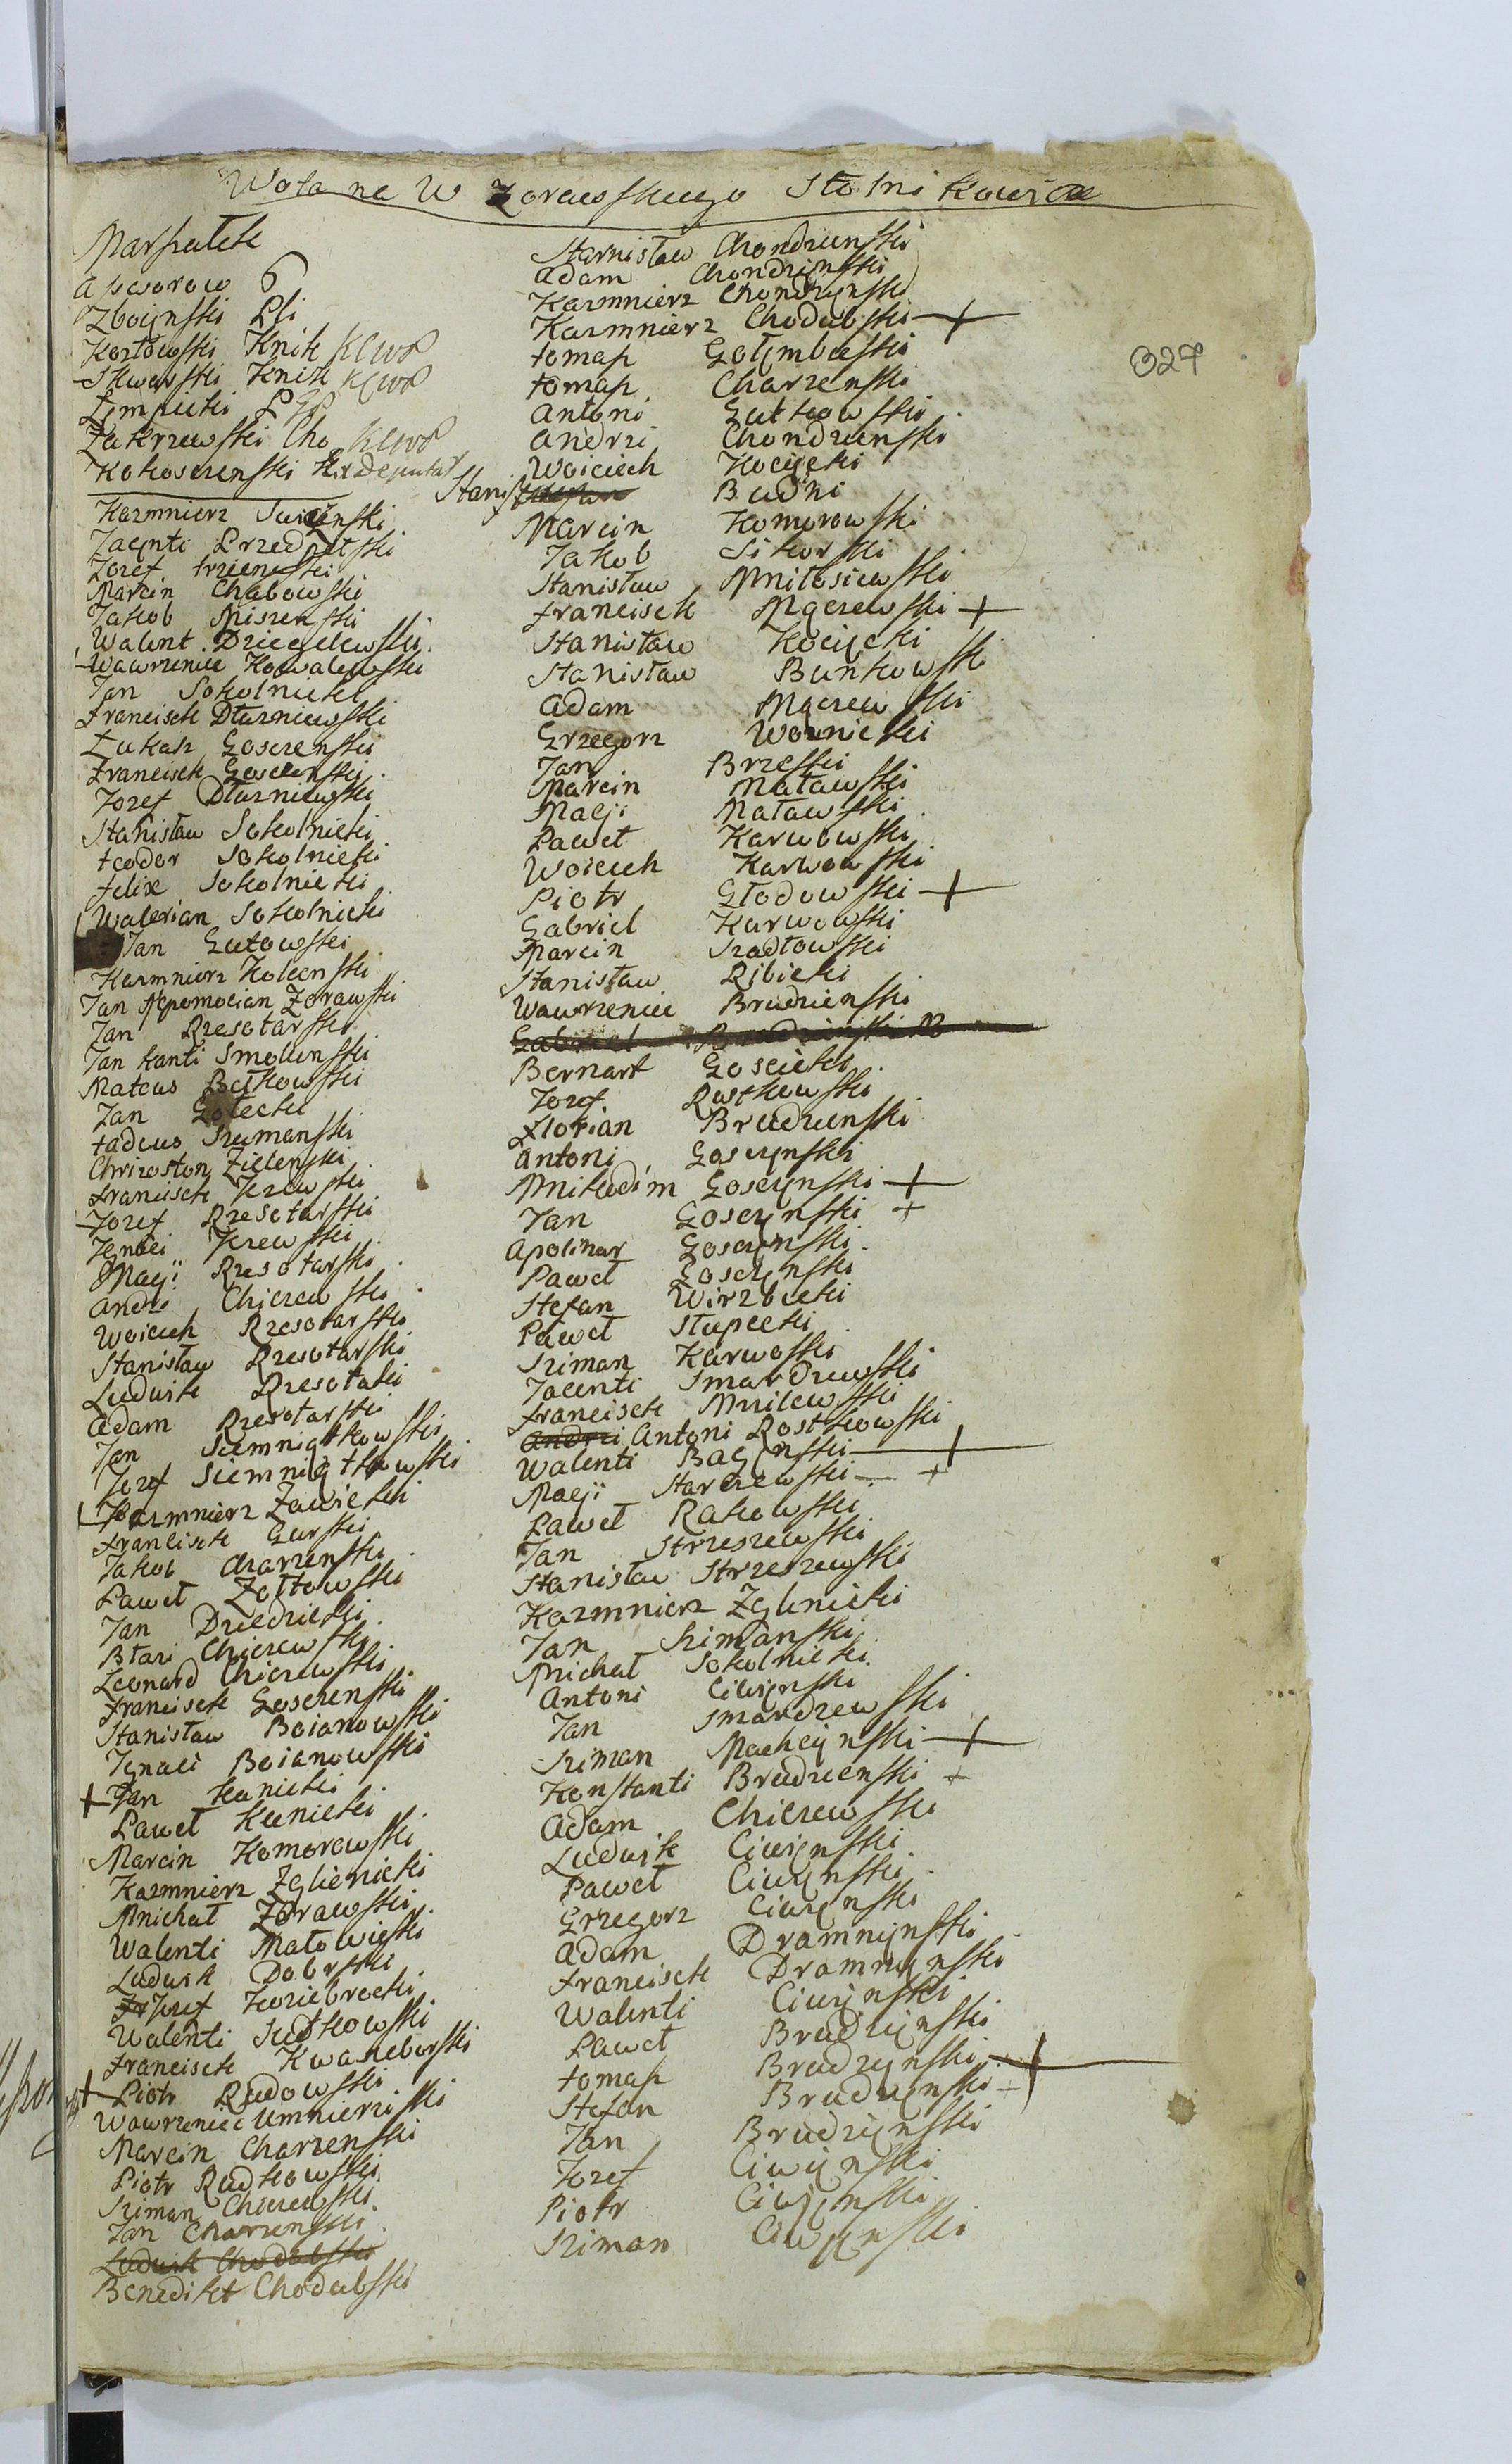 Wota na W Zorawskiego Stolnikowica
327
Marszałek
Asesorow 6
Zboijnski Pli
Kozłowski Knik KLWP
Skwarski Knik KLWP
Lempicki
Zakrzewski Cho KLWP
Kokoszenski Deputat
Kazmnierz
Jacynti Przedpełski
Jozef
Marcin Chabowski
Jakob Miszenski
Walent Dziegelewski
Wawrzeniec Kowalewski
Jan Sokolnicki
Franciszek Dłuzniewski
Łukasz Goszczenski
Franciszek Goszczenski
Jozef Dłuzniewski
Stanisław Sokolnicki
teodor Sokolnicki
felix Sokolnicki
Walerian Sokolnicki
Jan Gutowski
Kazmnierz Kolcenski
Jan Nepomocian Zorawski
Jan Rzesotarski
Jan kanti Smolenski
Mateus Betkowski
Jan Gołecki
tadeus Szumanski
Chrizoston Zielenski
Franciszek
Jozef Rzesotarski
Ignaci
Macji Rzesotarski
andrzi Chiczewski
Woiciech Rzesotarski
Stanisław Rzesotarski
Ludwik Rzesotaki
adam Rzesotarski
Jan Siemniątkowski
Jozef Siemniątkowski
Kazmnierz Zawicki
Franciszek Gurski
Jakob Charzenski
Paweł Zołtowski
Jan Dziedzicki
Błazi Chiczewski
Leonard Chiczewski
Franciszek Goszczenski
Stanisław Boianowski
Ignaci Boianowski
+ Jan Kunicki
Paweł Kunicki
Marcin Komorowski
Kazmnierz Zglienicki
Mnichał Zorawski
Walenti Małowieski
Ludwik Dobrski
Jozef Koziebrocki
Walenti Sudkowski
Franciszek Kwaseborski
+ Piotr Rudowski
Wawrzeniec Umnierziski
Marcin Charzenski
Piotr Rudkowski
Sziman Chiczewski
Jan Charzenski
Ludwik Chodubski
Benedikt Chodubski
Starnisław Chondzienski
adam Chondzijnski
Kazmnierz Chondzynski
Kazmnierz Chodubski +
tomasz Gołymbieski
tomasz Charzenski
antoni Gutkowski
andrzi Chondzienski
Woiciech Kocijcki
Stanis Budni
Marcin Komorowski
Jakob Sikorski
Stanisław Mniłosiewski
franciszek Mączewski +
Stanisław Kocijcki
Stanisław Bunkowski
adam Mączewski
Grzegorz Woznicki
Jan Brzeski
Marcin Matawski
Macji Matawski
Paweł Karwowski
Woiciech Karwowski
Piotr Głodowski +
Gabriel Karwowski
Marcin Szadłowski
Stanisław Ribicki
Wawrzeniec Brudzienski
Gabriel Brudzinski
Bernart Goscicki
Jozef Rostkowski
Florian Brudzienski
antoni Goscynski
Mnikodim Goscynski +
Jan Goscynski +
apolinar Goscynski
Paweł Goscynski
Stefan Wirzbicki
Paweł Słupecki
Sziman Karwoski
Jacenti Smardzewski
franciszek Mnilewski
andrzi antoni Rostkowski
Walenti Bagynski +
Macji Starczewski +
Paweł Rakowski
Jan Strzeszewski
Stanisław Strzeszewski
Kazmnierz Zglinicki
Jan Szimanski
Michał Sokolnicki
Antoni Ciwijnski
Jan Smardzewski
Sziman Machcijnski +
Konstanti Brudzienski +
adam Chiczewski
Ludwik Ciwijnski
Paweł Ciwijnski
Grzegorz Ciwijnski
adam Dramnijnski
Franciszek Dramnijnski
Walenti Ciwijnski
Paweł Brudzijnski
tomasz Brudzijnski +
Stefan Brudzijnski +
Jan Brudzijnski
Jozef Ciwijnski
Piotr Ciwijnski
Sziman Ciwijnski